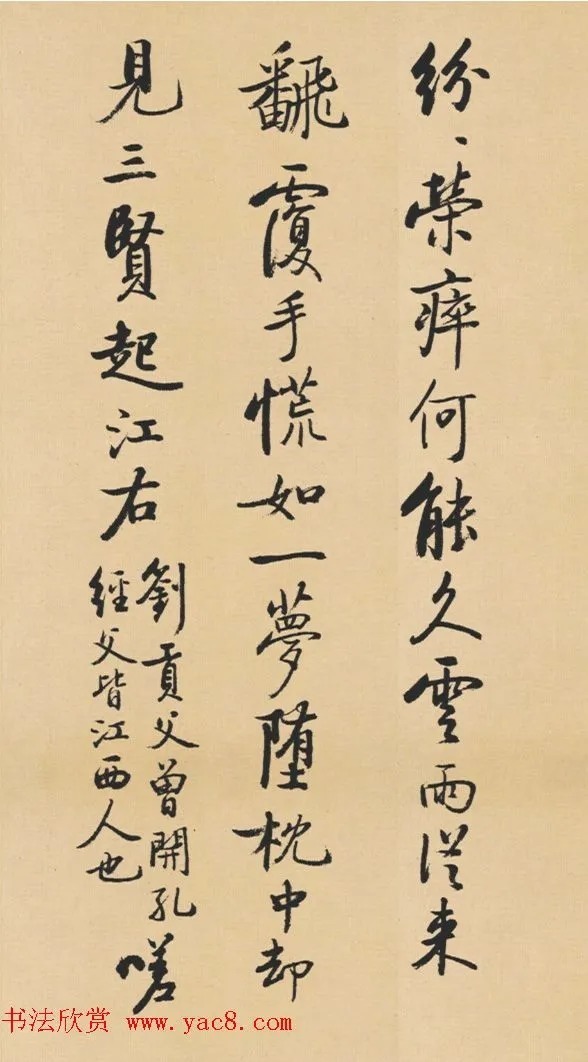 紛、榮瘁何能久雲雨從来
飜覆手慌如一夢墮枕中却
見三賢起江右
劉貢父曾開孔
經父皆江西人也
嗟
书法欣赏 www.yac8.com